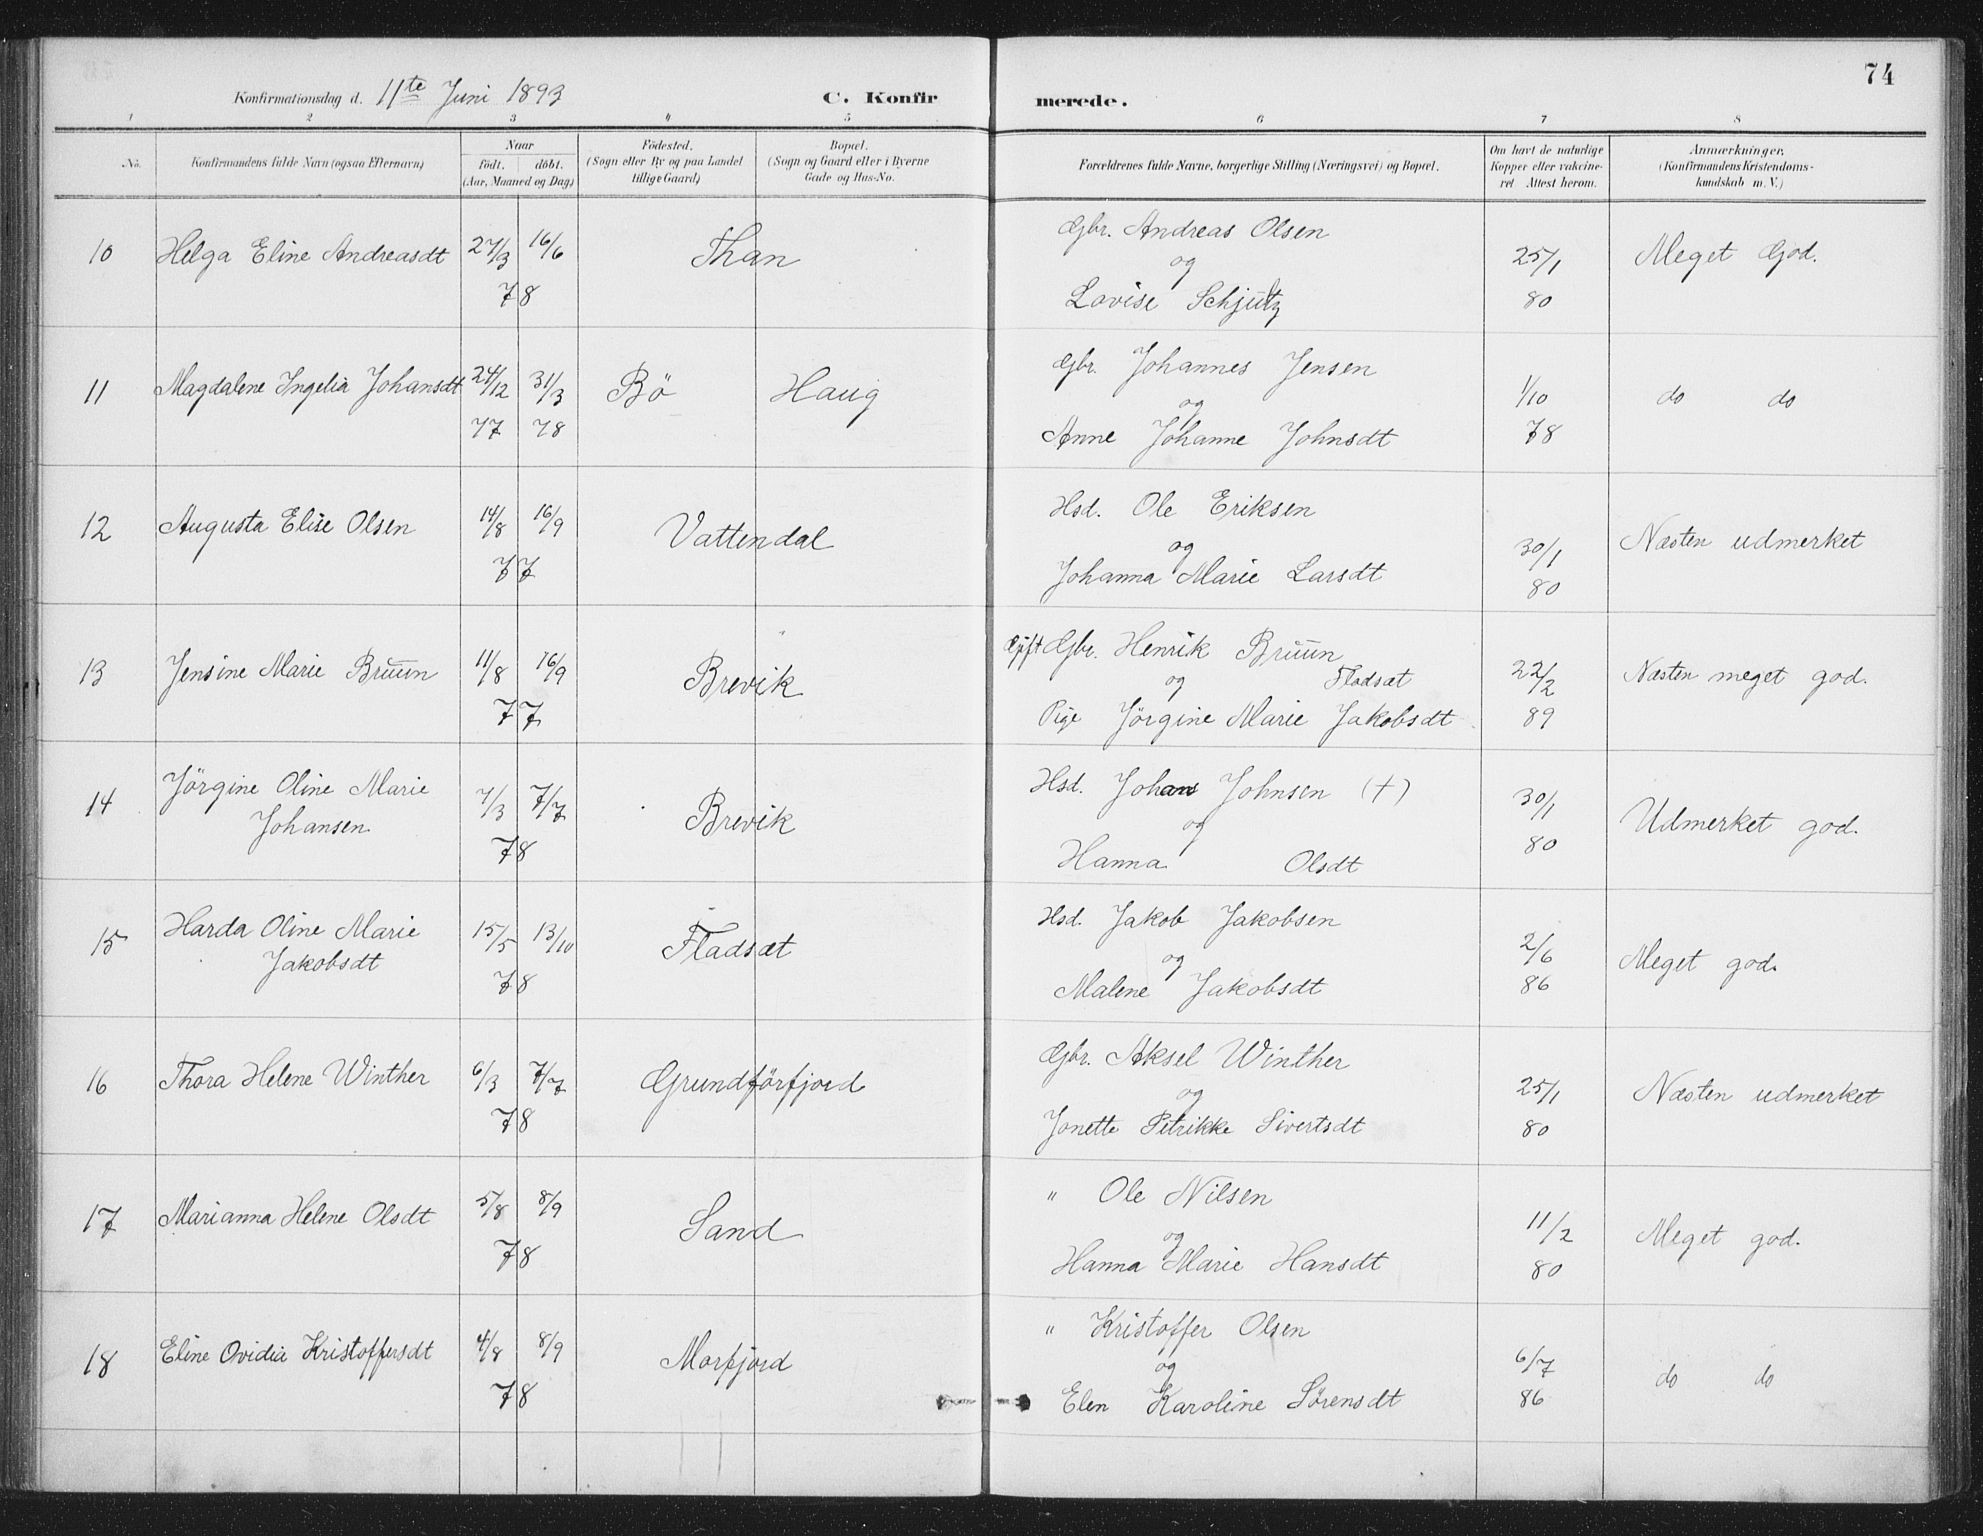 74
Konfirmationsdag d. 11te Juni 1893 C. Konfirmerede.
1 2 3 4 5 6 7 8
No. Konfirmandens fulde Navn (ogsaa Efternavn) Naar født. døbt. (Aar, Maaned og Dag) Födested. (Sogn eller By og paa Landet tillige Gaard) Bopæl. (Sogn og Gaard eller i Byerne Gade og Hus-No. Forældrenes fulde Navne, borgerlige Stilling (Næringsvei) og Bopæl. Om havt de naturlige Kopper eller vakcineret Attest herom. Anmærkninger, (Konfirmandens Kristendomskundskab m. V.)
Gbr. Andreas Olsen
10 Helga Eline Andreasdt 27/3 16/6 Than og 25/1 Meget God.
78 Lovise Schjütz 80
Gbr. Johannes Jensen
11 Magdalene Ingelia Johansdt 24/12 31/3 Bö Haug og 1/10 do do
77 78 Anne Johanne Johnsdt 78
Hsd. Ole Eriksen
12 Augusta Elise Olsen 14/8 16/9 Vattendal og 30/1 Næsten udmerket
77 Johanna Marie Larsdt 80
Gift Gbr. Henrik Bruun
13 Jensine Marie Bruun 11/8 16/9 Brevik og Fladsæt 22/2 Næsten meget god.
77 Pige Jörgine Marie Jakobsdt 89
Jörgine Oline Marie Hsd. Johans Johnsen (+)
14 Johansen 7/3 7/7 Brevik og 30/1 Udmerket god.
78 Hanna Olsdt 80
Harda Oline Marie Hsd. Jakob Jakobsen
15 Jakobsdt 15/5 13/10 Fladsæt og 2/6 Meget god.
78 Malene Jakobsdt 86
Gbr. Aksel Winther
16 Thora Helene Winther 6/3 7/7 Grundförfjord og 25/1 Næsten udmerket
78 Jonette Petrikke Sivertsdt 80
" Ole Nilsen
17 Marianna Helene Olsdt 5/8 8/9 Sand og 11/2 Meget god.
78 Hanna Marie Hansdt 80
" Kristoffer Olsen
18 Eline Ovidia Kristoffersdt 4/8 8/9 Morfjord og 6/7 do do
78 Elen Karoline Sörensdt 86